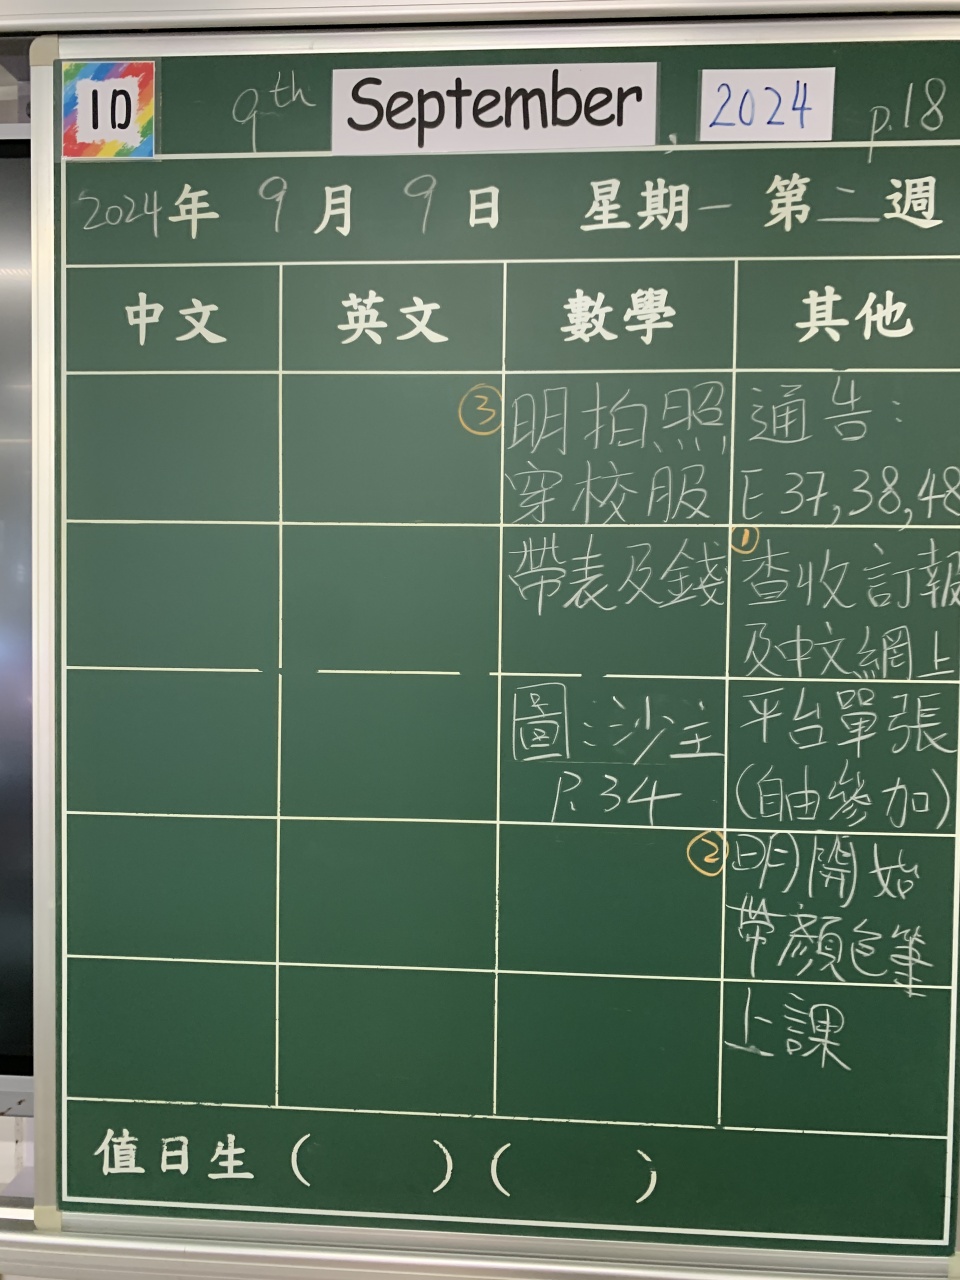 1D 9th September, 2024 p.18
2024年 9月 9日 星期一 第二週
中文 英文 數學 其他
③ 明拍照, 通告:
穿校服 E37,38,48
帶表及錢 ① 查收訂報
及中文網上
圖:沙主 平台單張
P.34 (自由參加)
② 明開始
帶顏色筆
上課
值日生 ( ) ( )